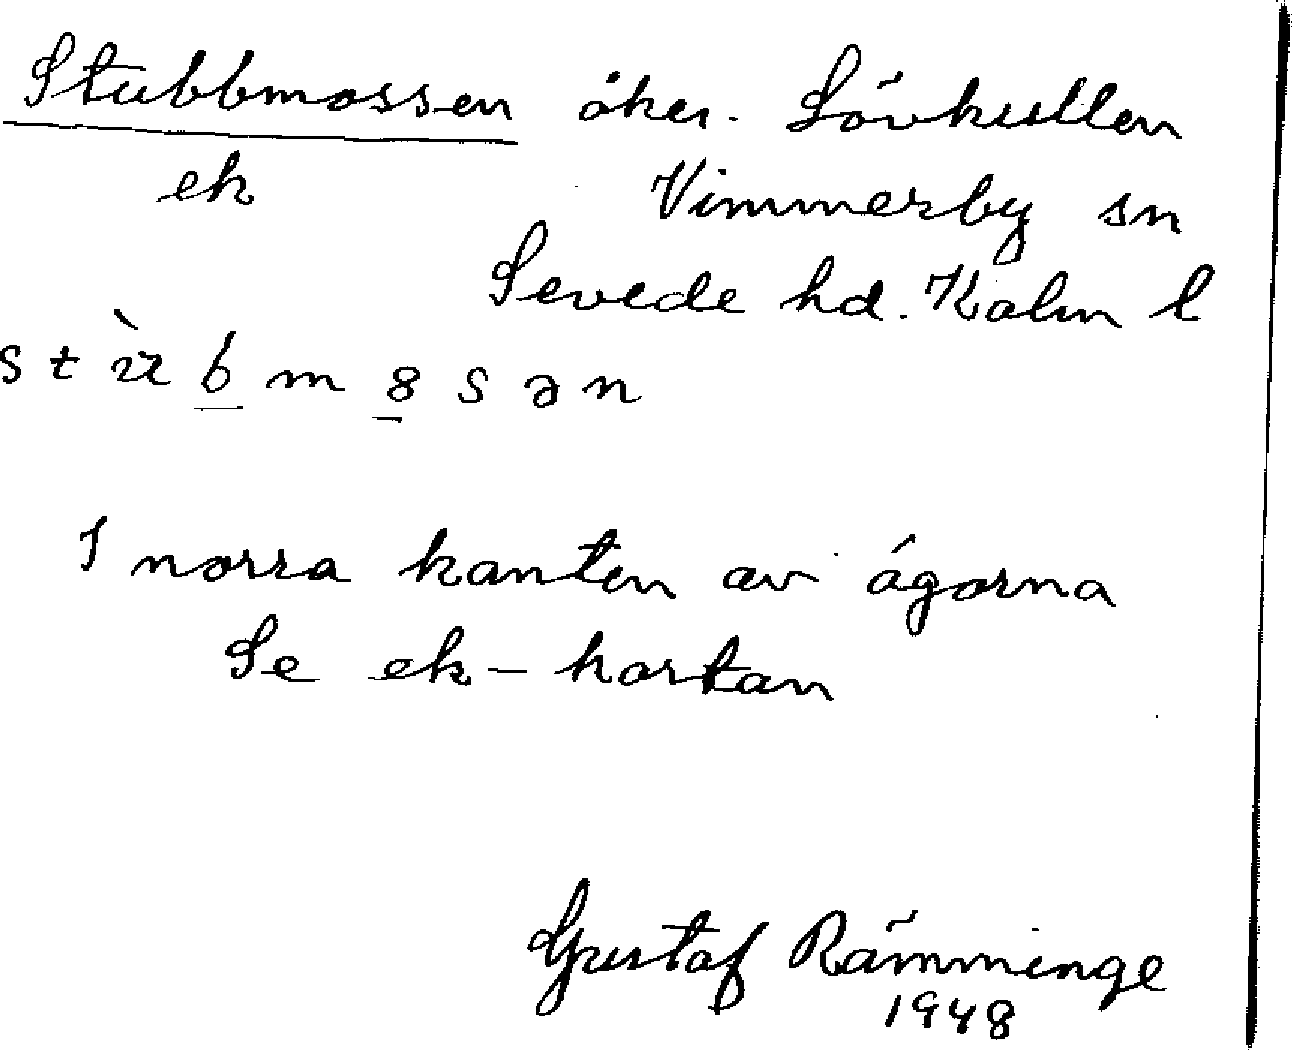 Stubbmossen åker. Lövkullen
ek Vimmerby sn
Sevede hd. Kalm l
s t b m 8 s ə n
I norra kanten av ägorna
Se ek-kartan
Gustaf Rämminge
1948